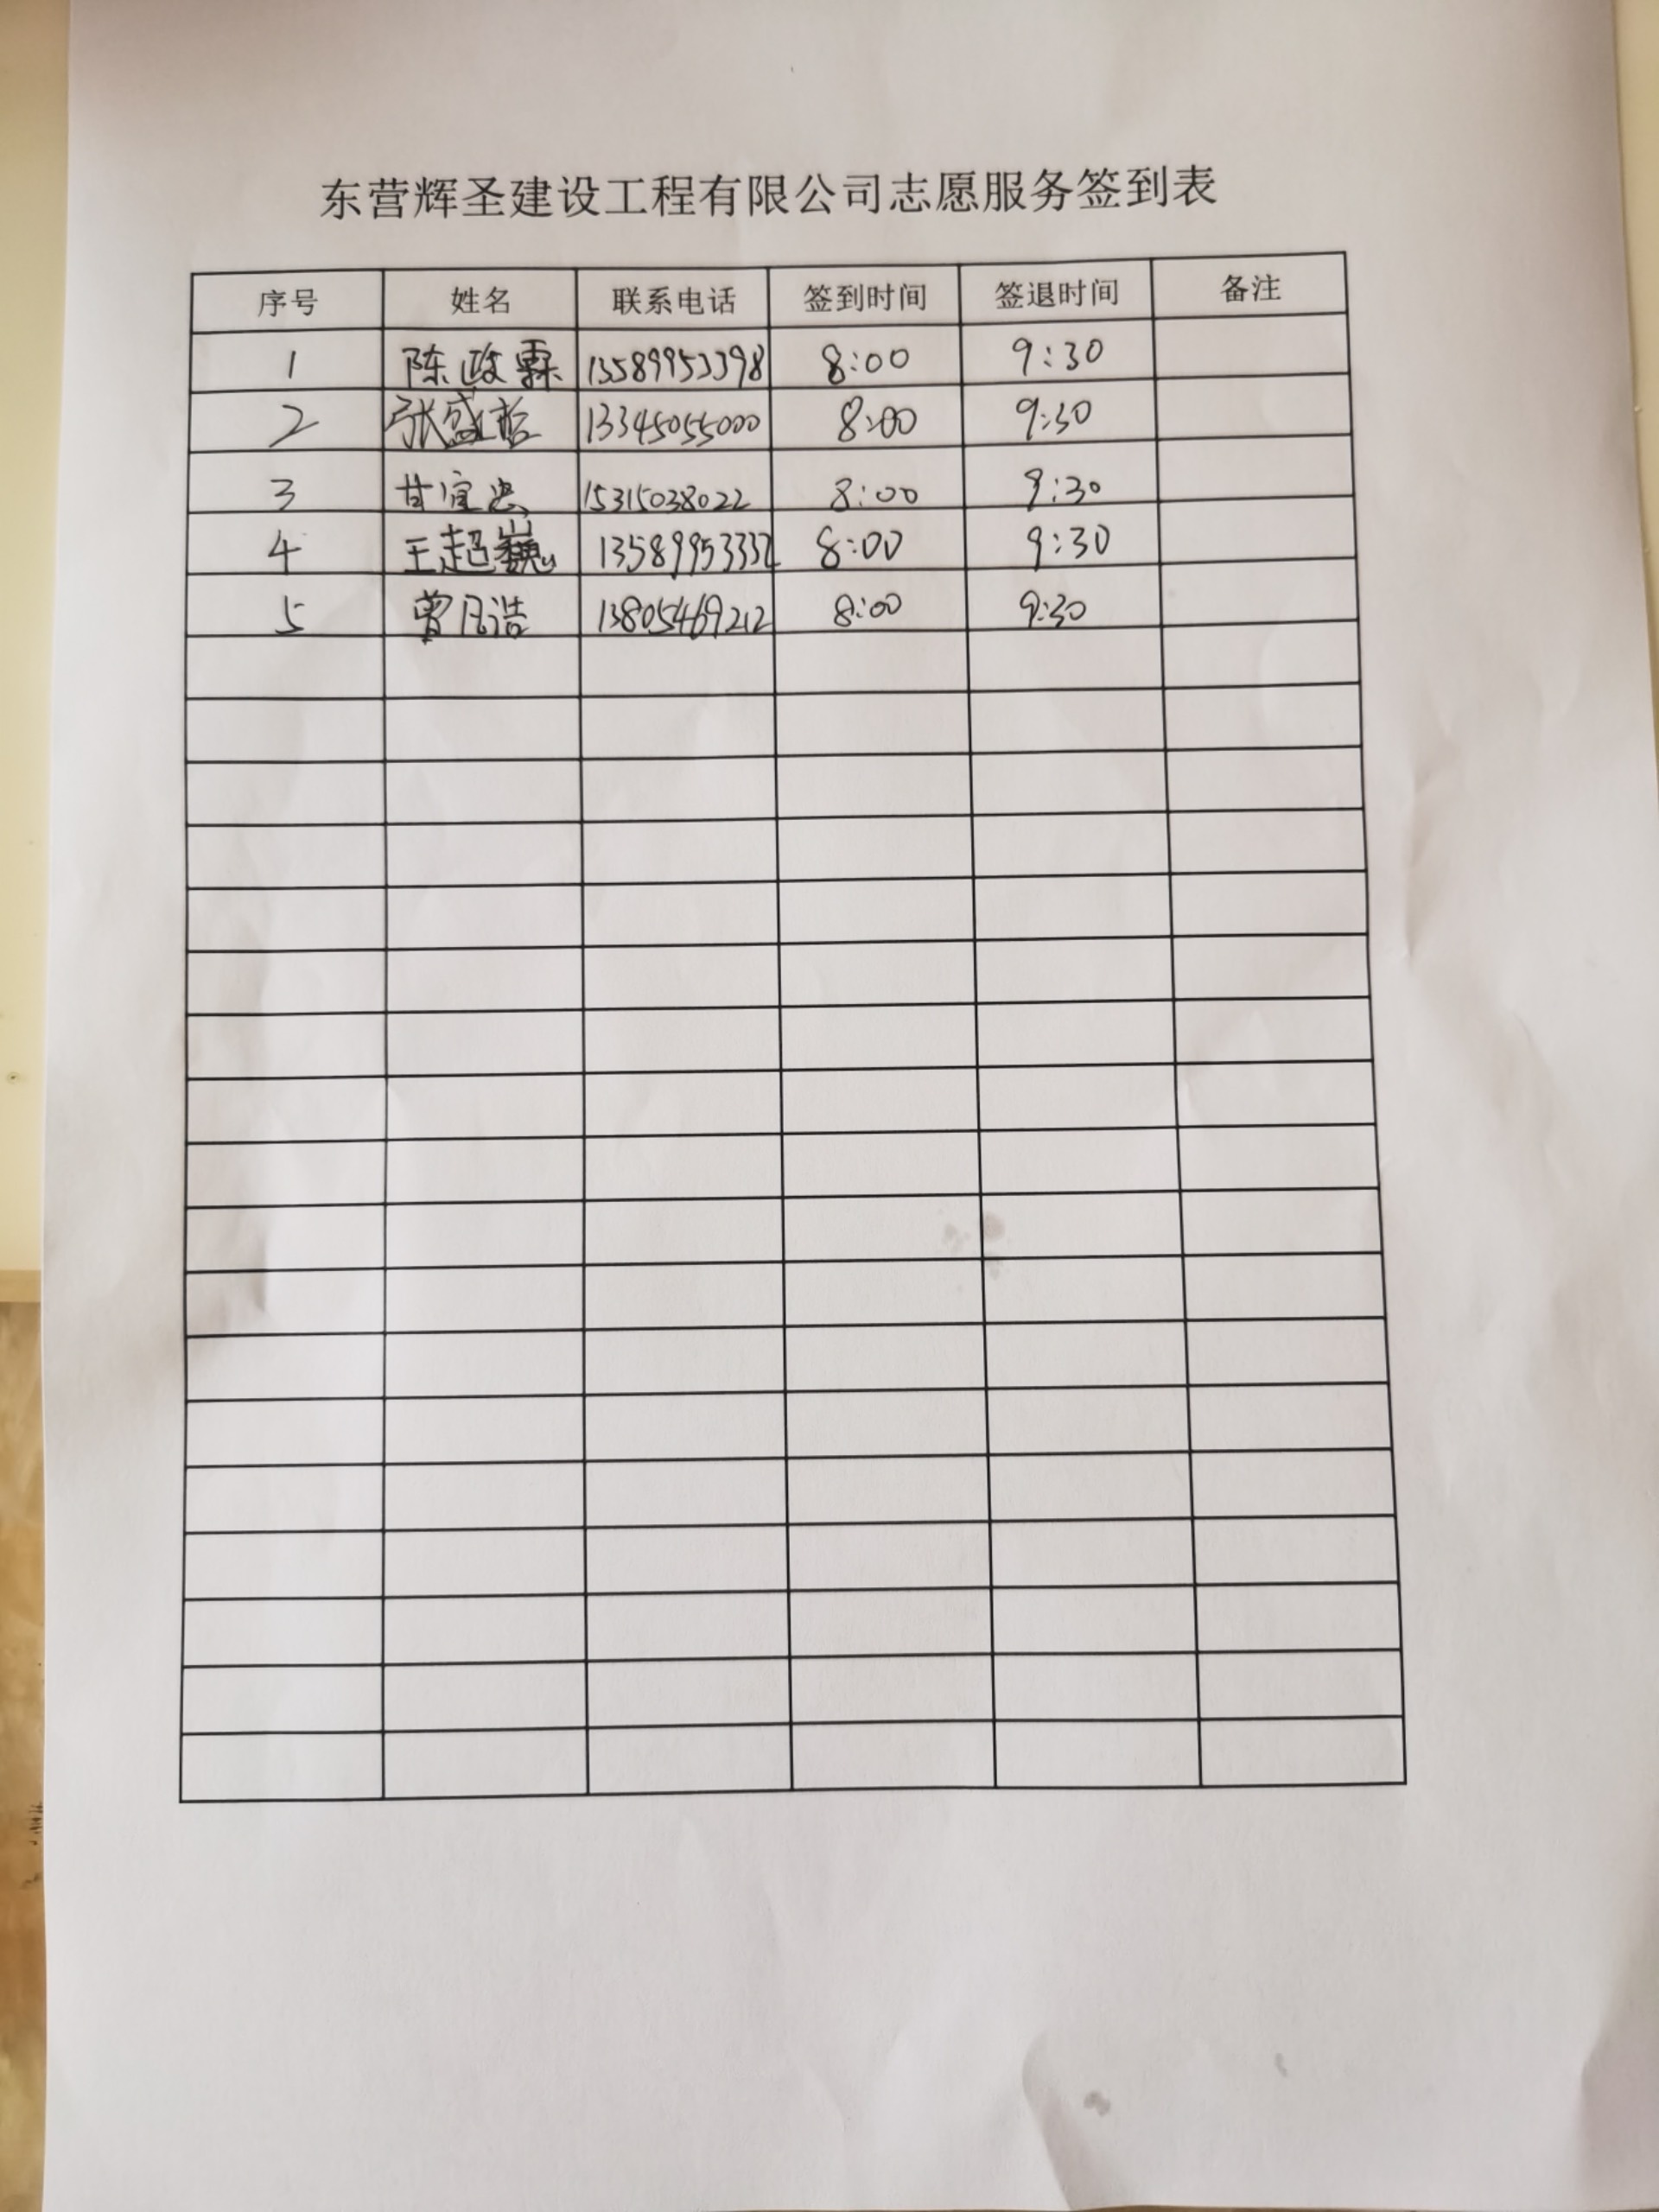 东营辉圣建设工程有限公司志愿服务签到表
序号 姓名 联系电话 签到时间 签退时间 备注
1 陈政霖 13589953398 8:00 9:30
2 张盛哲 13345055000 8:00 9:30
3 甘宜忠 15315038022 8:00 9:30
4 王超巍 13589953332 8:00 9:30
5 曾凡浩 13805469212 8:00 9:30